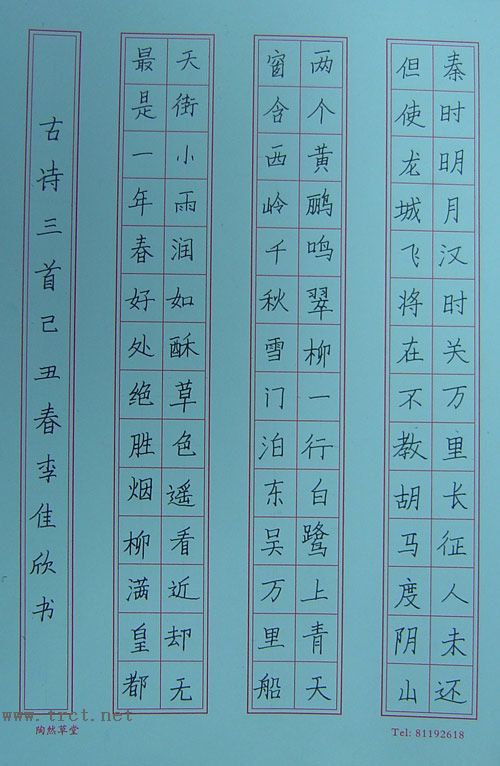 秦时明月汉时关万里长征人未还
但使龙城飞将在不教胡马度阴山
两个黄鹂鸣翠柳一行白鹭上青天
窗含西岭千秋雪门泊东吴万里船
天街小雨润如酥草色遥看近却无
最是一年春好处绝胜烟柳满皇都
古诗三首己丑春李佳欣书
www.trct.net
陶然草堂
Tel: 81192618